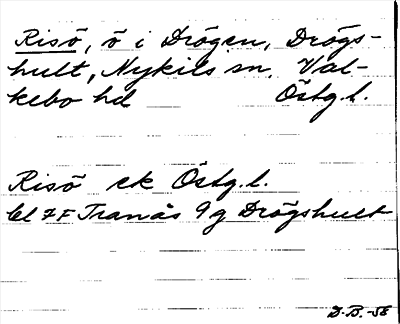 Risö, ö i Drögen, Drögs-
hult, Nykils sn, Val-
kebo hd Östg.l.
Risö ek Östg.l.
bl 7 F Tranås 9 g Drögshult
D.B.-58